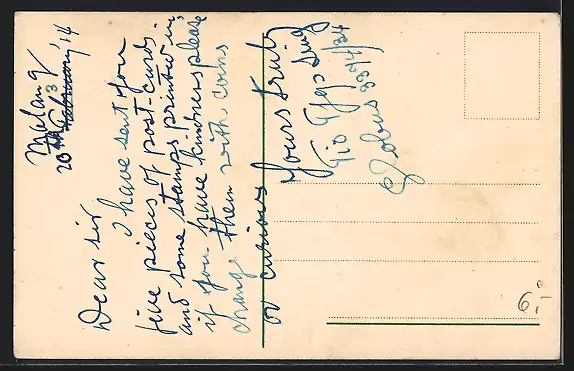 Malang
20 February '14
Dear sir
I have sent you
five pieces of post-cards.
and some stamps printed in,
if you have kindness please
change them with coins
or curious
Yours truly
Tio
6.-